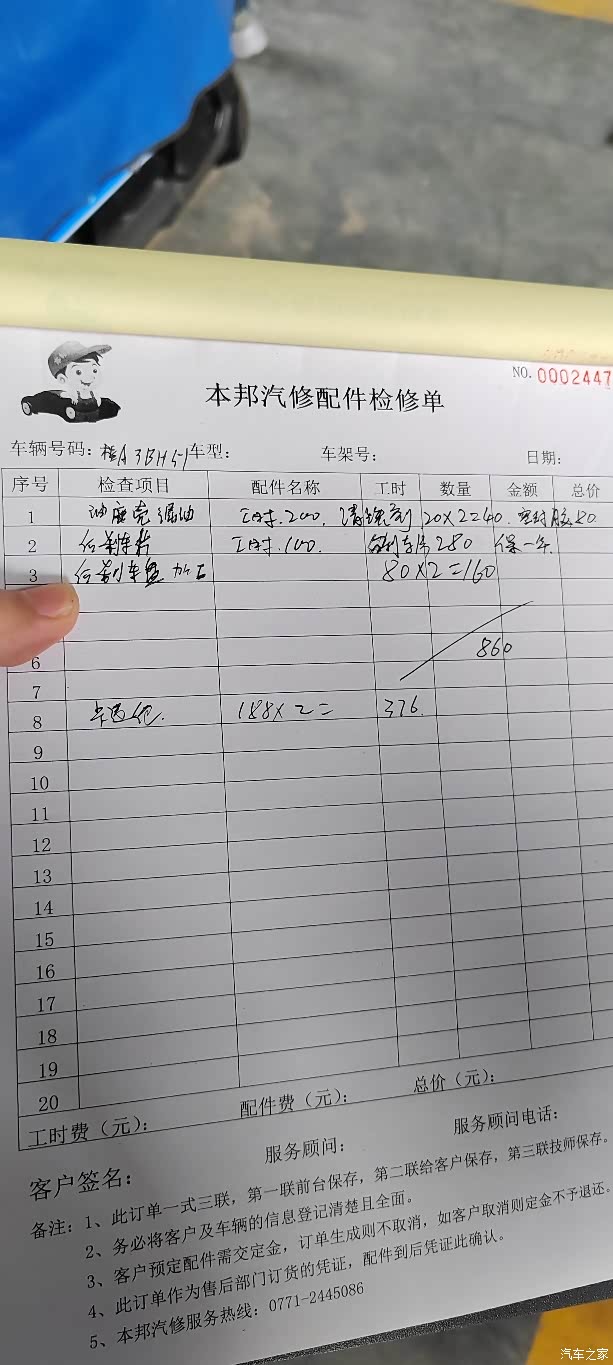 NO. 0002447
本邦汽修配件检修单
车辆号码: 桂A3BH51 车型: 车架号: 日期:
序号 检查项目 配件名称 工时 数量 金额 总价
1 油底壳漏油 工时.200. 清洗剂 20×2=40. 密封胶80
2 后刹车片 工时.100. 刹车片280 保一年.
3 后刹车盘加工 80×2=160
6 860
7
8 188×2= 376.
9
10
11
12
13
14
15
16
17
18
19
20
工时费(元): 配件费(元): 总价(元):
服务顾问: 服务顾问电话:
客户签名:
备注: 1、此订单一式三联,第一联前台保存,第二联给客户保存,第三联技师保存。
2、务必将客户及车辆的信息登记清楚且全面。
3、客户预定配件需交定金,订单生成则不取消,如客户取消则定金不予退还。
4、此订单作为售后部门订货的凭证,配件到后凭证此确认。
5、本邦汽修服务热线:0771-2445086
汽车之家